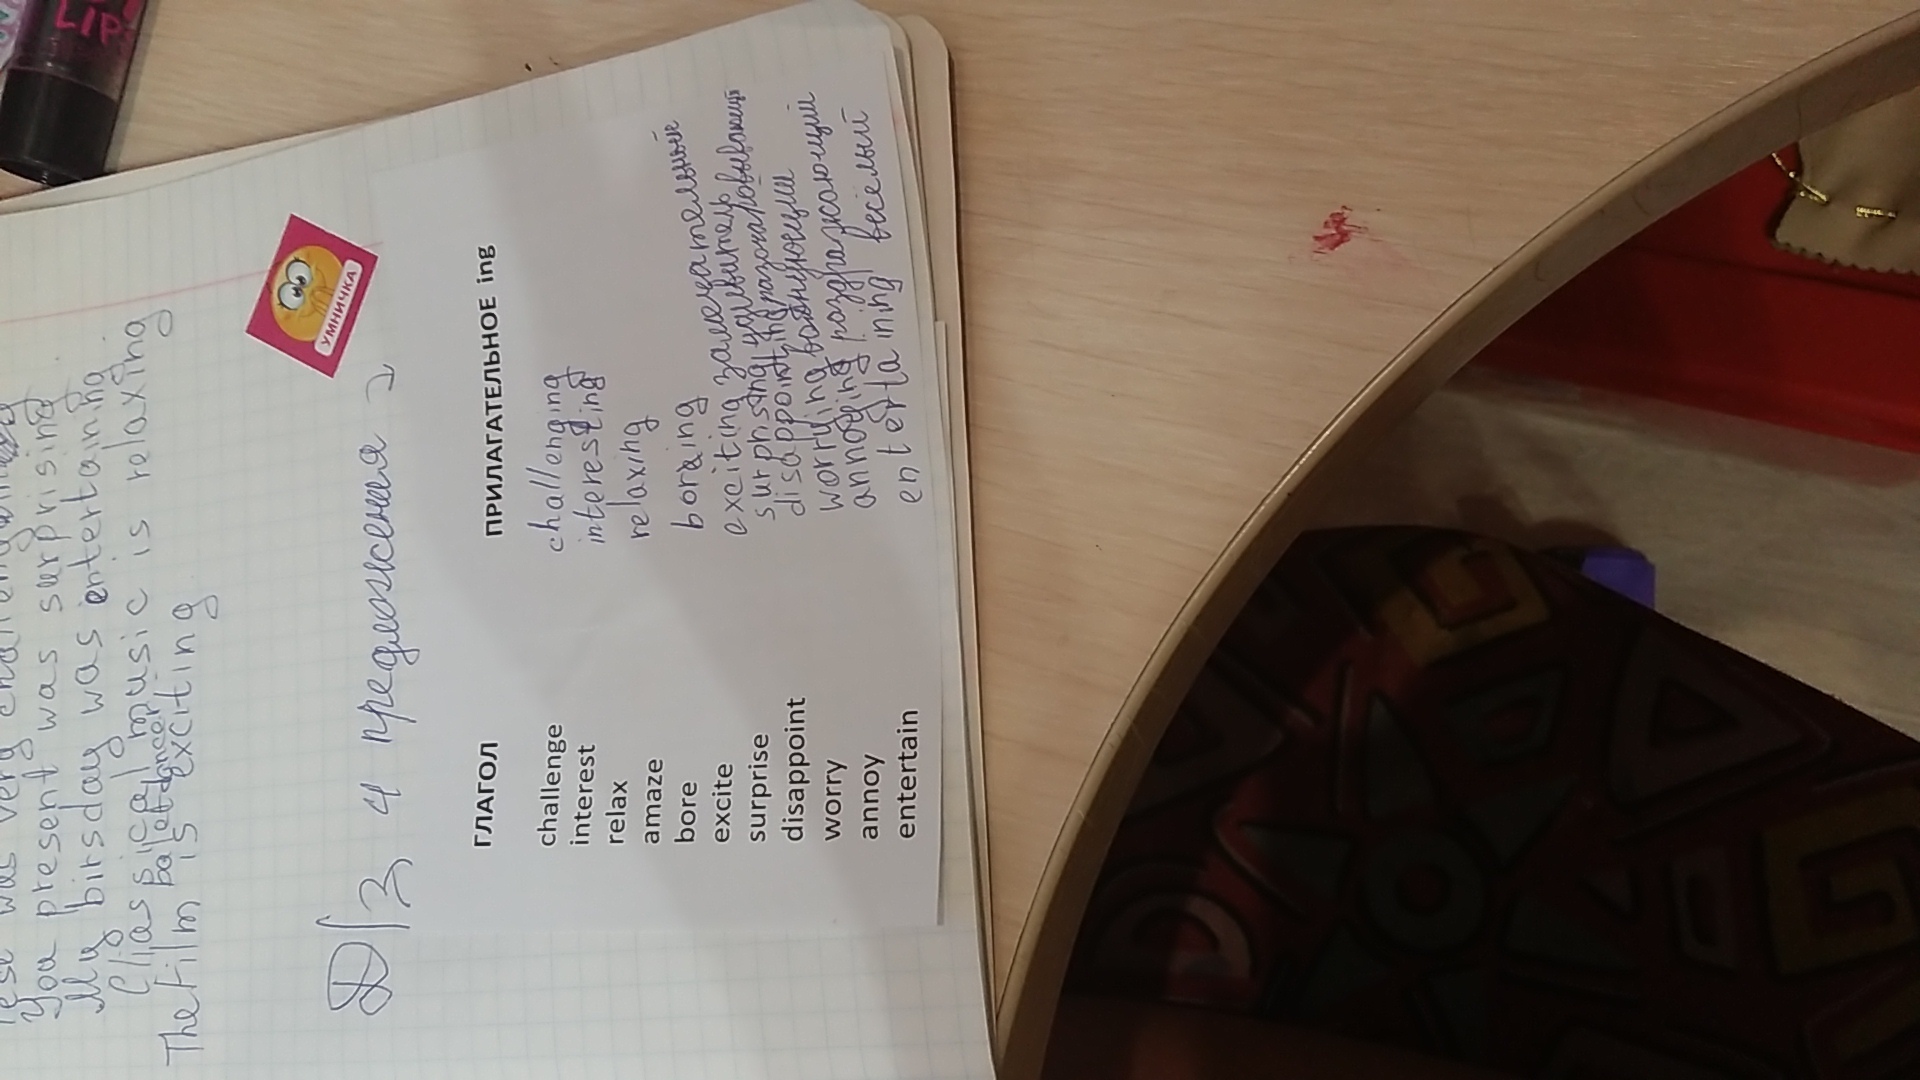 was very
You present was surprising
My birsday was entertaning.
Classical music is relaxing
balet dancer
The film is exciting
УМНИЧКА
Д/З 4 предложения
ГЛАГОЛ ПРИЛАГАТЕЛЬНОЕ ing
challenge challenging
interest interesting
relax relaxing
amaze
bore boring
excite exciting замечательный
surprise surprising
disappoint disappointing
worry worrying волнующий
annoy раздражающий
entertain entertaining весёлый
LIPS